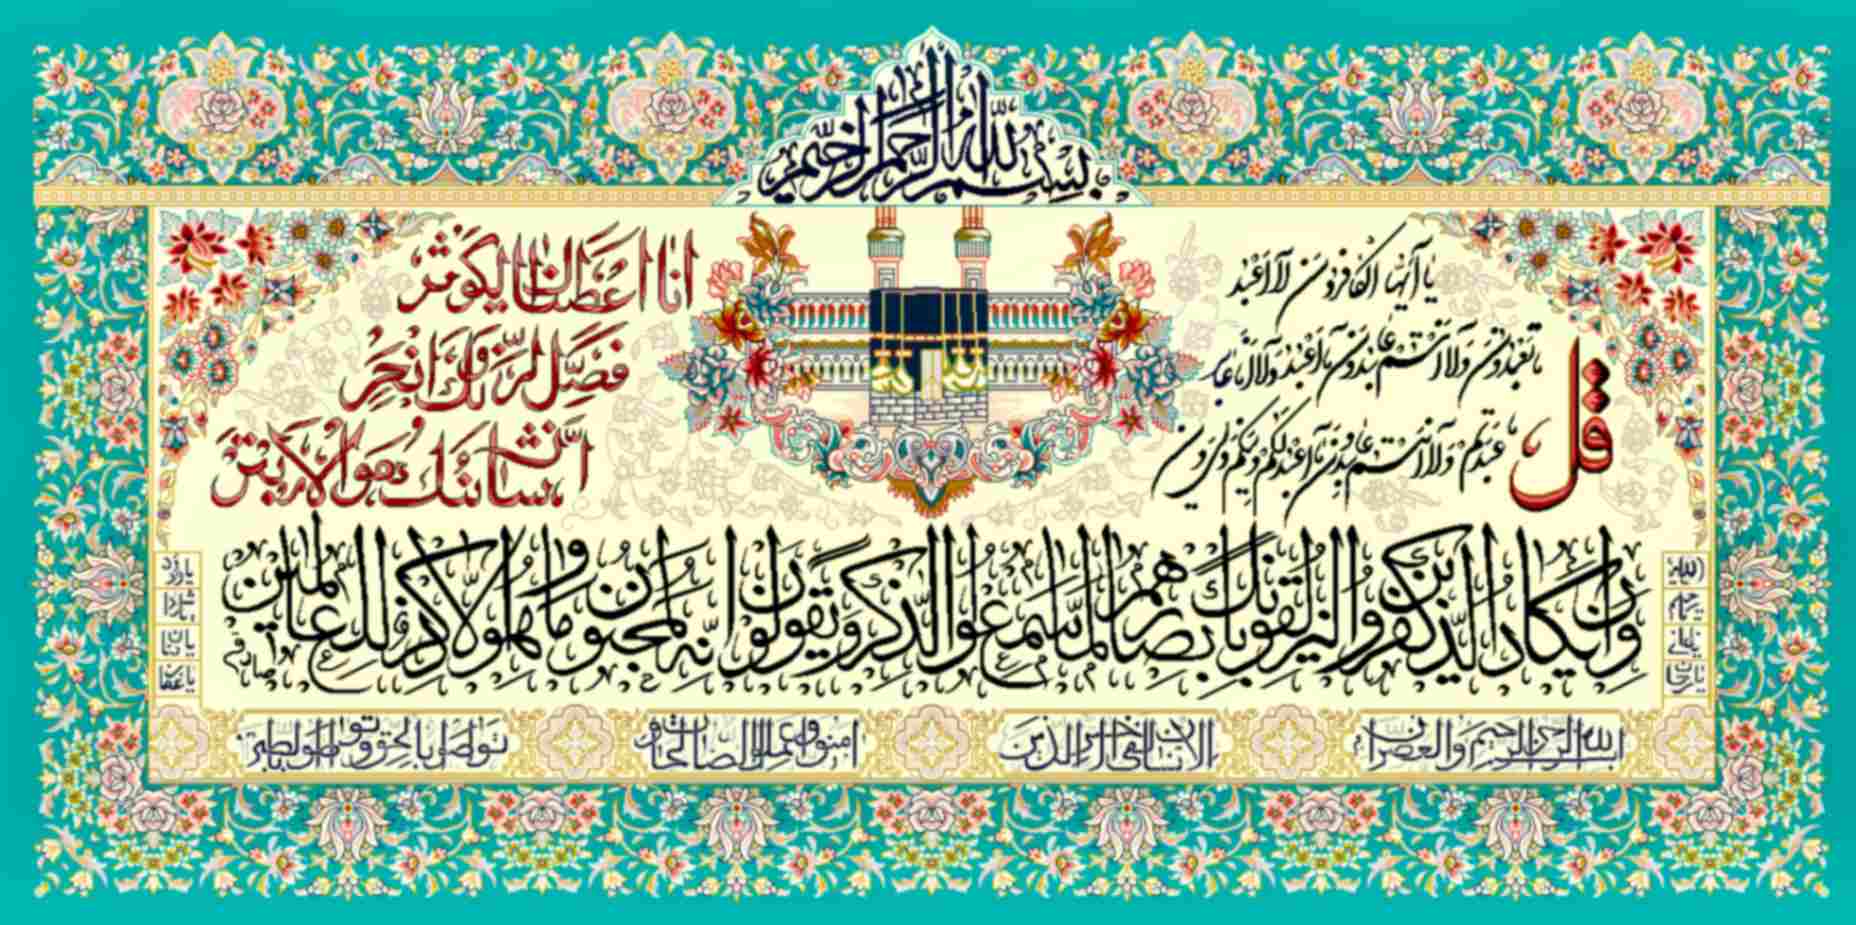 بسم الله الرحمن الرحيم
قل
يا أيها الكافرون لا أعبد
ما تعبدون ولا أنتم عابدون ما أعبد ولا أنا عابد
ما عبدتم ولا أنتم عابدون ما أعبد لكم دينكم ولي دين
انا اعطيناك الكوثر
فصل لربك وانحر
ان شانئك هو الابتر
وان يكاد الذين كفروا ليزلقونك بابصارهم لما سمعوا الذكر و يقولون انه لمجنون وما هو الا ذكر للعالمين
بسم الله الرحمن الرحيم والعصر ان
الانسان لفي خسر الا الذين
امنوا وعملوا الصالحات و
تواصوا بالحق وتواصوا بالصبر